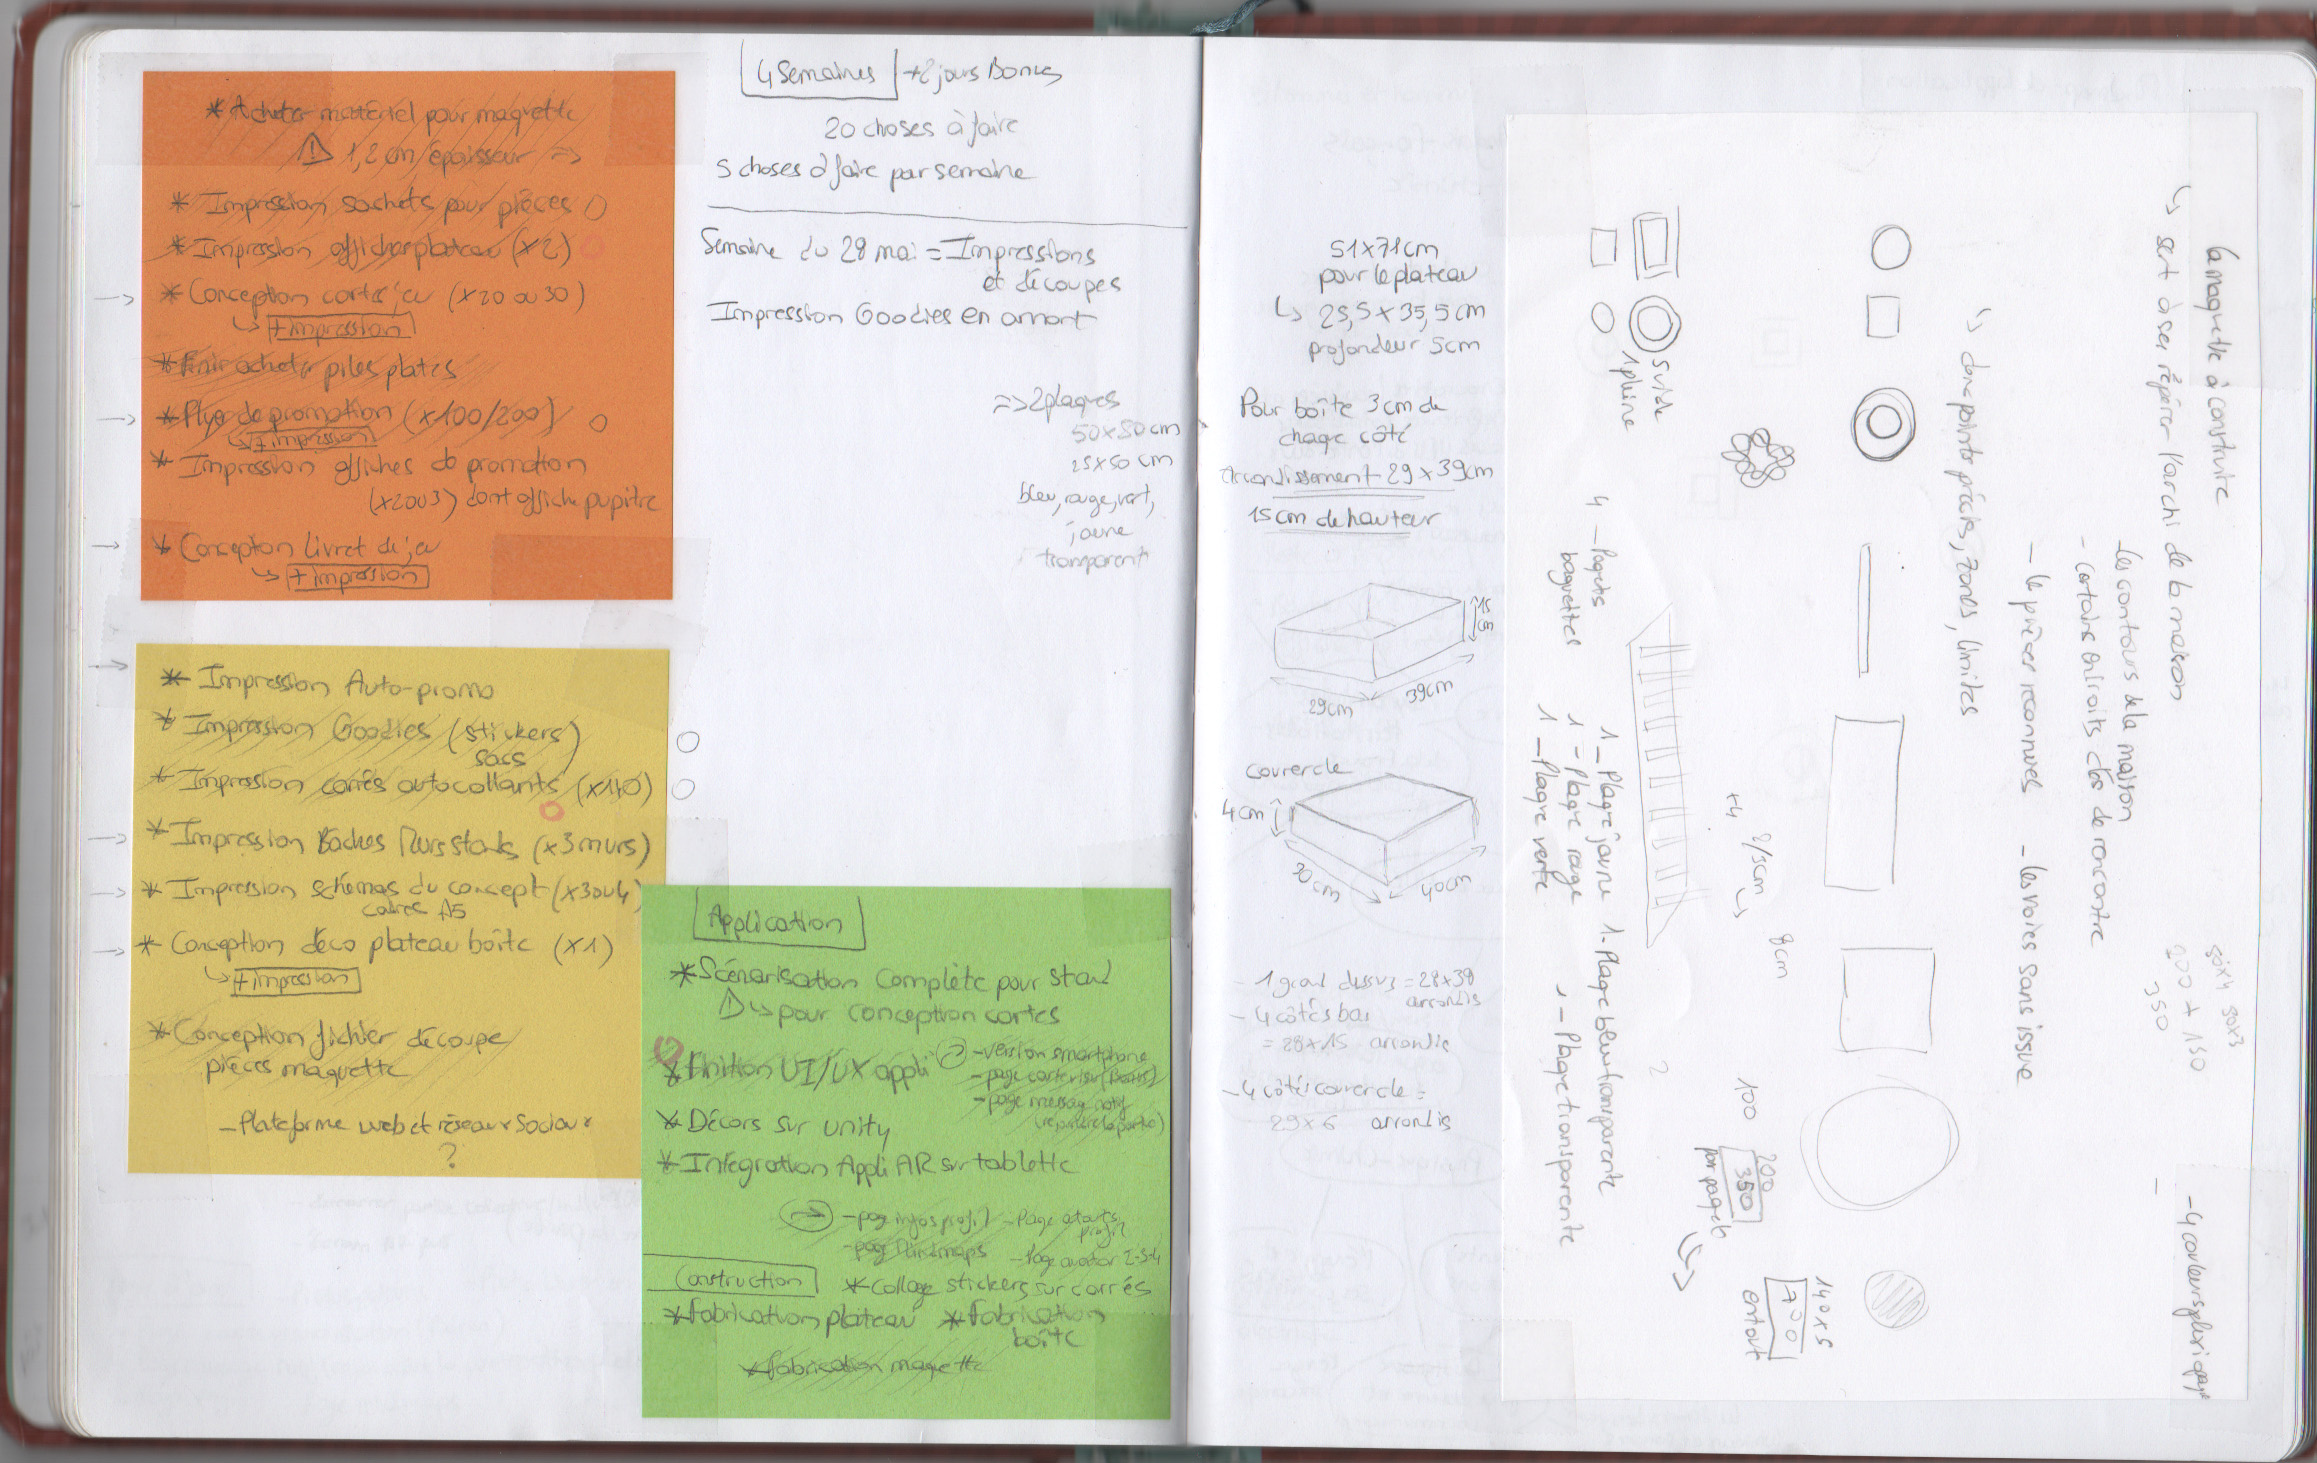 * Acheter matériel pour maquette
⚠ 1,2 cm épaisseur =>
* Impression sachets pour pièces
* Impression affiches plateau (x2)
* Conception cartes jeu (x20 ou 30)
↳ + impression
* Finir acheter piles plates
* Flyer de promotion (x100/200)
↳ + impression
* Impression affiches de promotion
(x2ou3) dont affiche pupitre
* Conception Livret de jeu
↳ + impression
* Impression Auto-promo
* Impression Goodies (stickers)
sacs
* Impression carrés autocollants (x140)
* Impression Bâches Murs stands (x3 murs)
* Impression schémas du concept (x3ou4)
cadres A5
* Conception déco plateau boîte (x1)
↳ + impression
* Conception fichier découpe
pièces maquette
- Plateforme web et réseaux sociaux
?
4 Semaines +2 jours Bonus
20 choses à faire
5 choses à faire par semaine
Semaine du 28 mai = Impressions
et découpes
Impression Goodies en amont
=> 2 plaques
50x50 cm
25x50 cm
bleu, rouge, vert,
jaune
transparent
Application
* Scénarisation Complète pour stand
⚠ ↳ pour conception cartes
* Finition UI/UX appli → - version smartphone
- page message notif
* Décors sur unity
* Intégration Appli AR sur tablette
→ - page infos profil - Page atouts
profil
- page Mindmaps - Page avatar 2-3-4
Construction * Collage stickers sur carrés
* Fabrication plateau * Fabrication
boîte
* Fabrication maquette
51x71cm
pour le plateau
↳ 25,5 x 35,5 cm
profondeur 5cm
Pour boîte 3 cm de
chaque côté
arrondissement 29 x 39cm
15 cm de hauteur
15
cm
29cm
39cm
couvercle
4 cm
30cm
40cm
- 1 grand dessus = 28x38
arrondis
- 4 côtés bas
= 28x15 arrondis
- 4 côtés couvercle =
29x6 arrondis
La maquette à construire
↳ sert à se repérer l'archi de la maison
- Les contours de la maison
- certains endroits clés de rencontre
- les pièces reconnues - les voies sans issue
↳ donc points précis, zones, limites
- 4 couleurs
50x4 50x3
200 + 150
350
5 vide
1 pleine
+4
2/3cm
8cm
100
200
350
par paquet
140x5
700
en tout
?
4 - Paquets
baguettes
1 - Plaque jaune 1 - Plaque bleu transparente
1 - Plaque rouge
1 - Plaque transparente
1 - Plaque verte